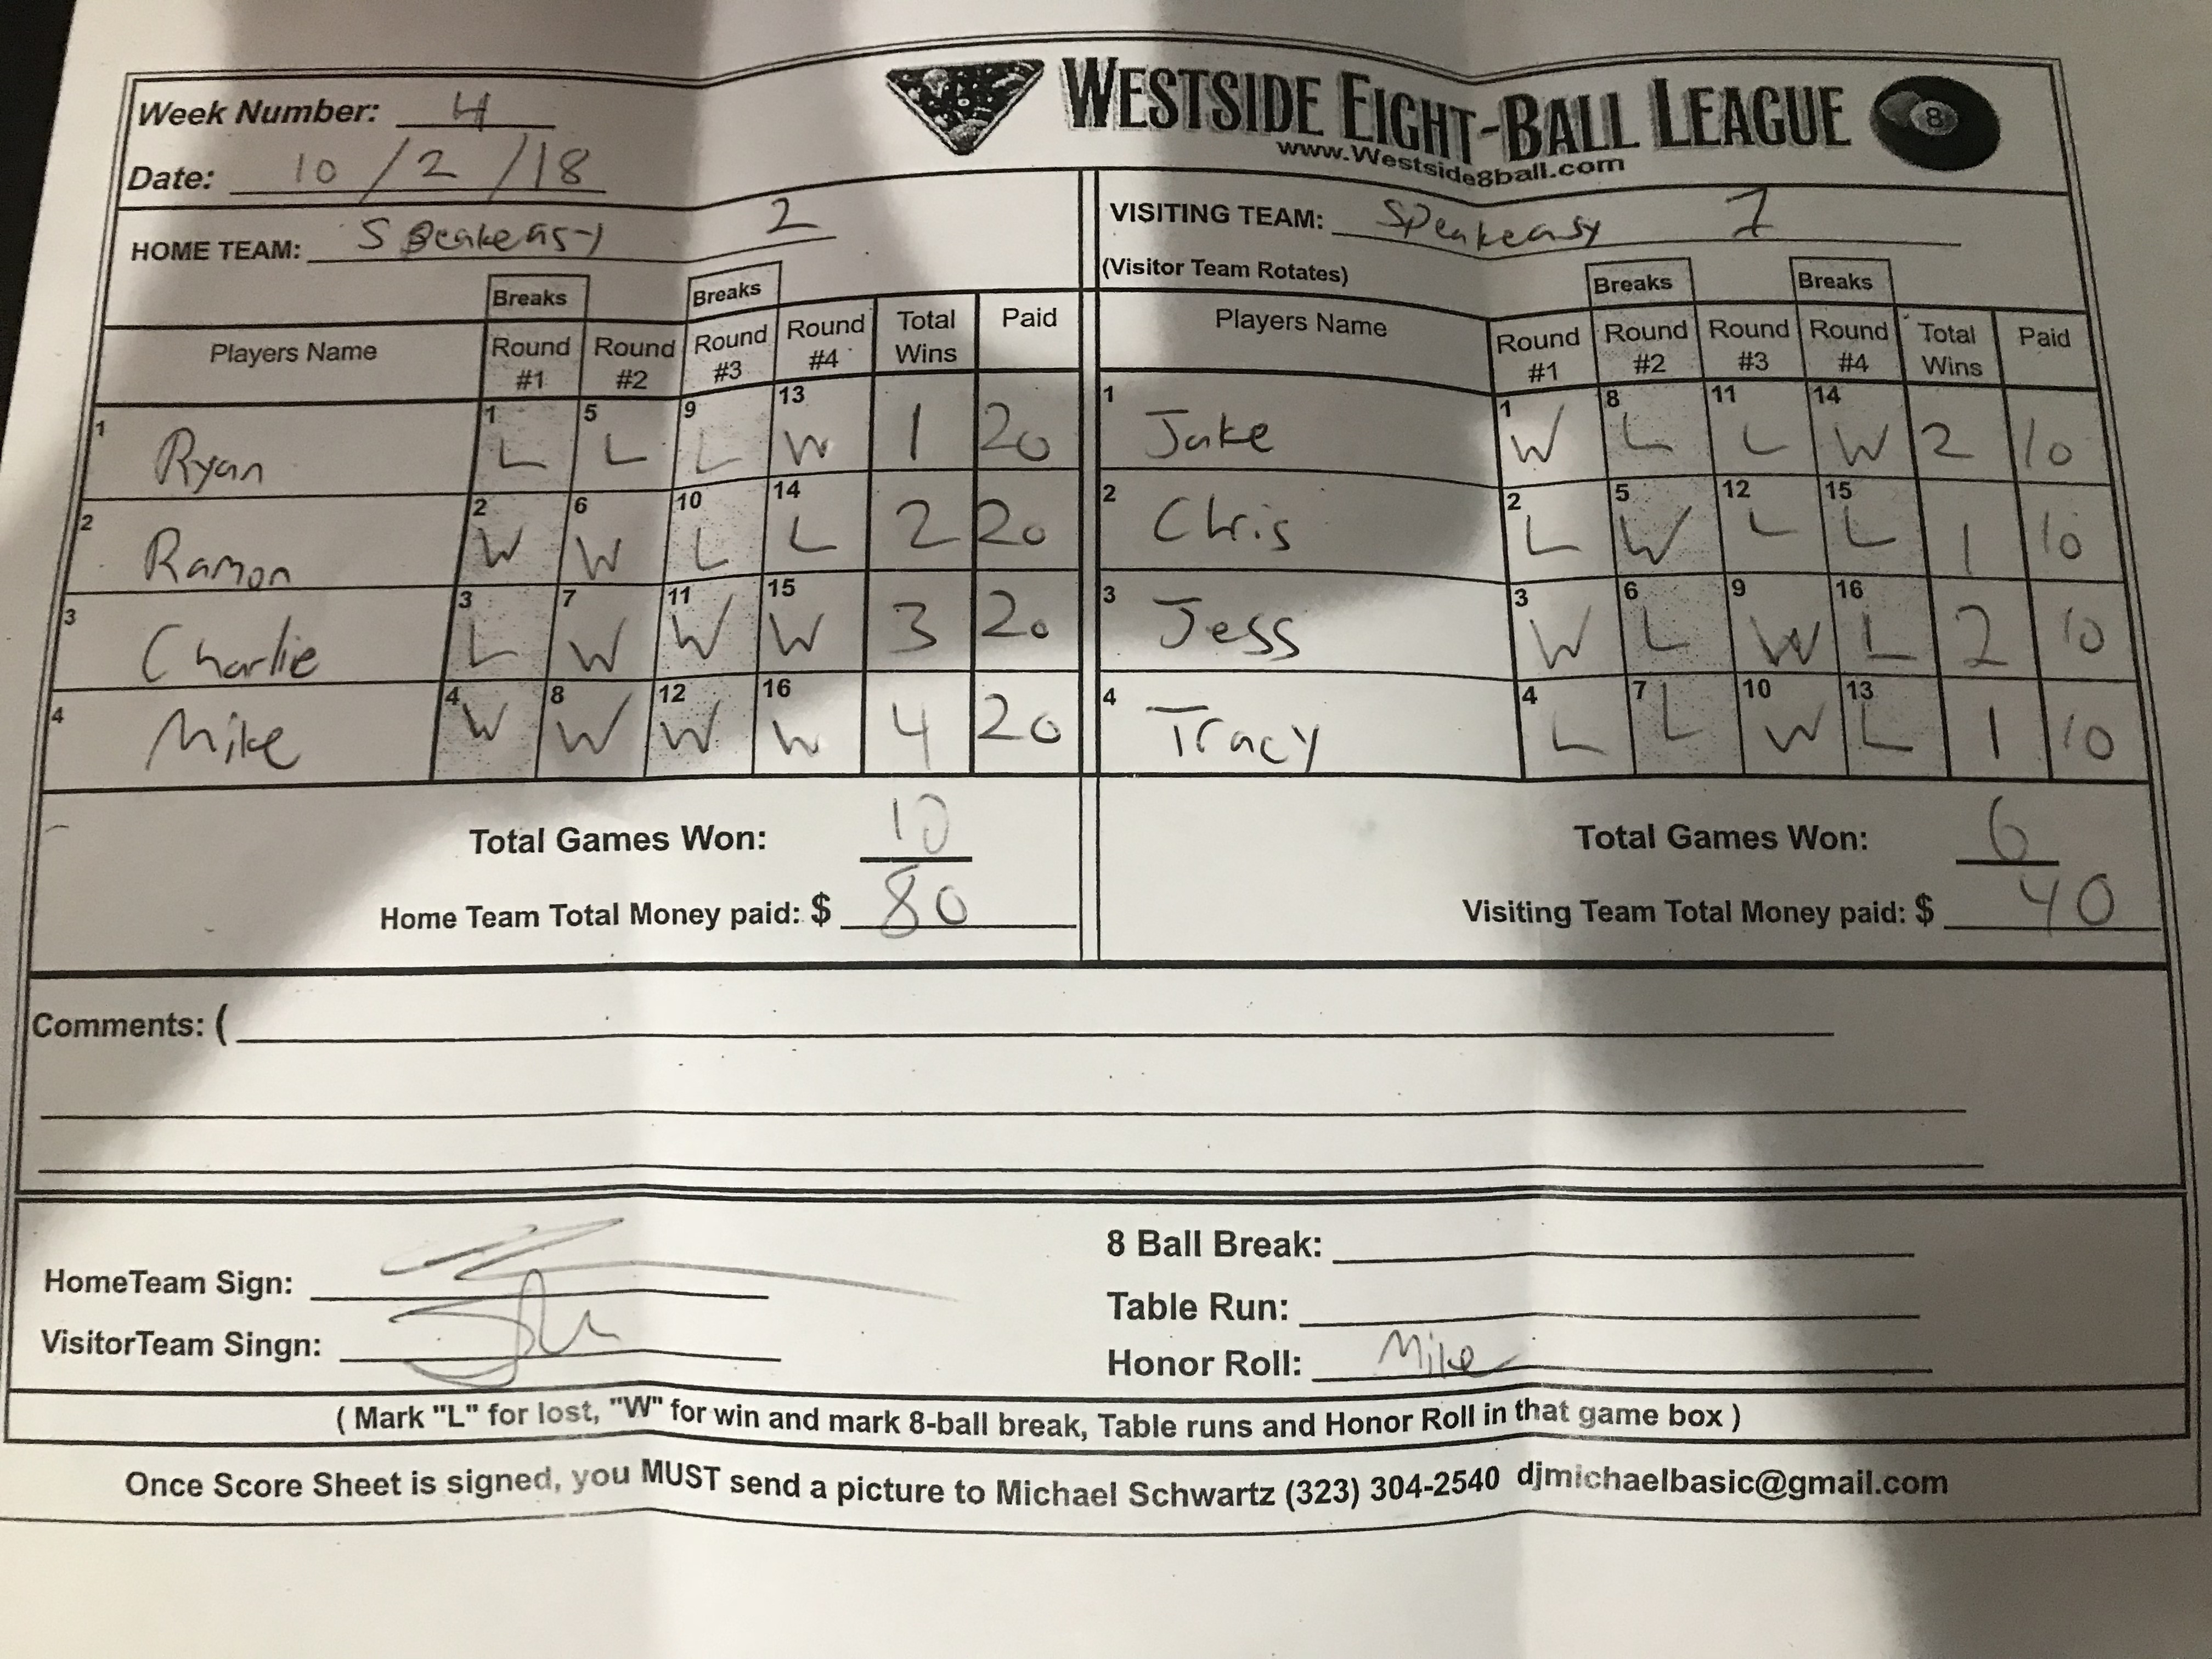 Week Number: 4
Date: 10/2/18
WESTSIDE EIGHT-BALL LEAGUE 8
www.Westside8ball.com
HOME TEAM: Speakeasy 2
VISITING TEAM: Speakeasy 1
(Visitor Team Rotates)
Breaks Breaks
Players Name Round #1 Round #2 Round #3 Round #4 Total Wins Paid
1 Ryan 1 L 5 L 9 L 13 W 1 20
2 Ramon 2 W 6 W 10 L 14 L 2 20
3 Charlie 3 L 7 W 11 W 15 W 3 20
4 Mike 4 W 8 W 12 W 16 W 4 20
Total Games Won: 10
Home Team Total Money paid: $ 80
Breaks Breaks
Players Name Round #1 Round #2 Round #3 Round #4 Total Wins Paid
1 Jake 1 W 8 L 11 L 14 W 2 10
2 Chris 2 L 5 W 12 L 15 L 1 10
3 Jess 3 W 6 L 9 W 16 L 2 10
4 Tracy 4 L 7 L 10 W 13 L 1 10
Total Games Won: 6
Visiting Team Total Money paid: $ 40
Comments: (
HomeTeam Sign:
VisitorTeam Singn:
8 Ball Break:
Table Run:
Honor Roll: Mike
( Mark "L" for lost, "W" for win and mark 8-ball break, Table runs and Honor Roll in that game box )
Once Score Sheet is signed, you MUST send a picture to Michael Schwartz (323) 304-2540 djmichaelbasic@gmail.com